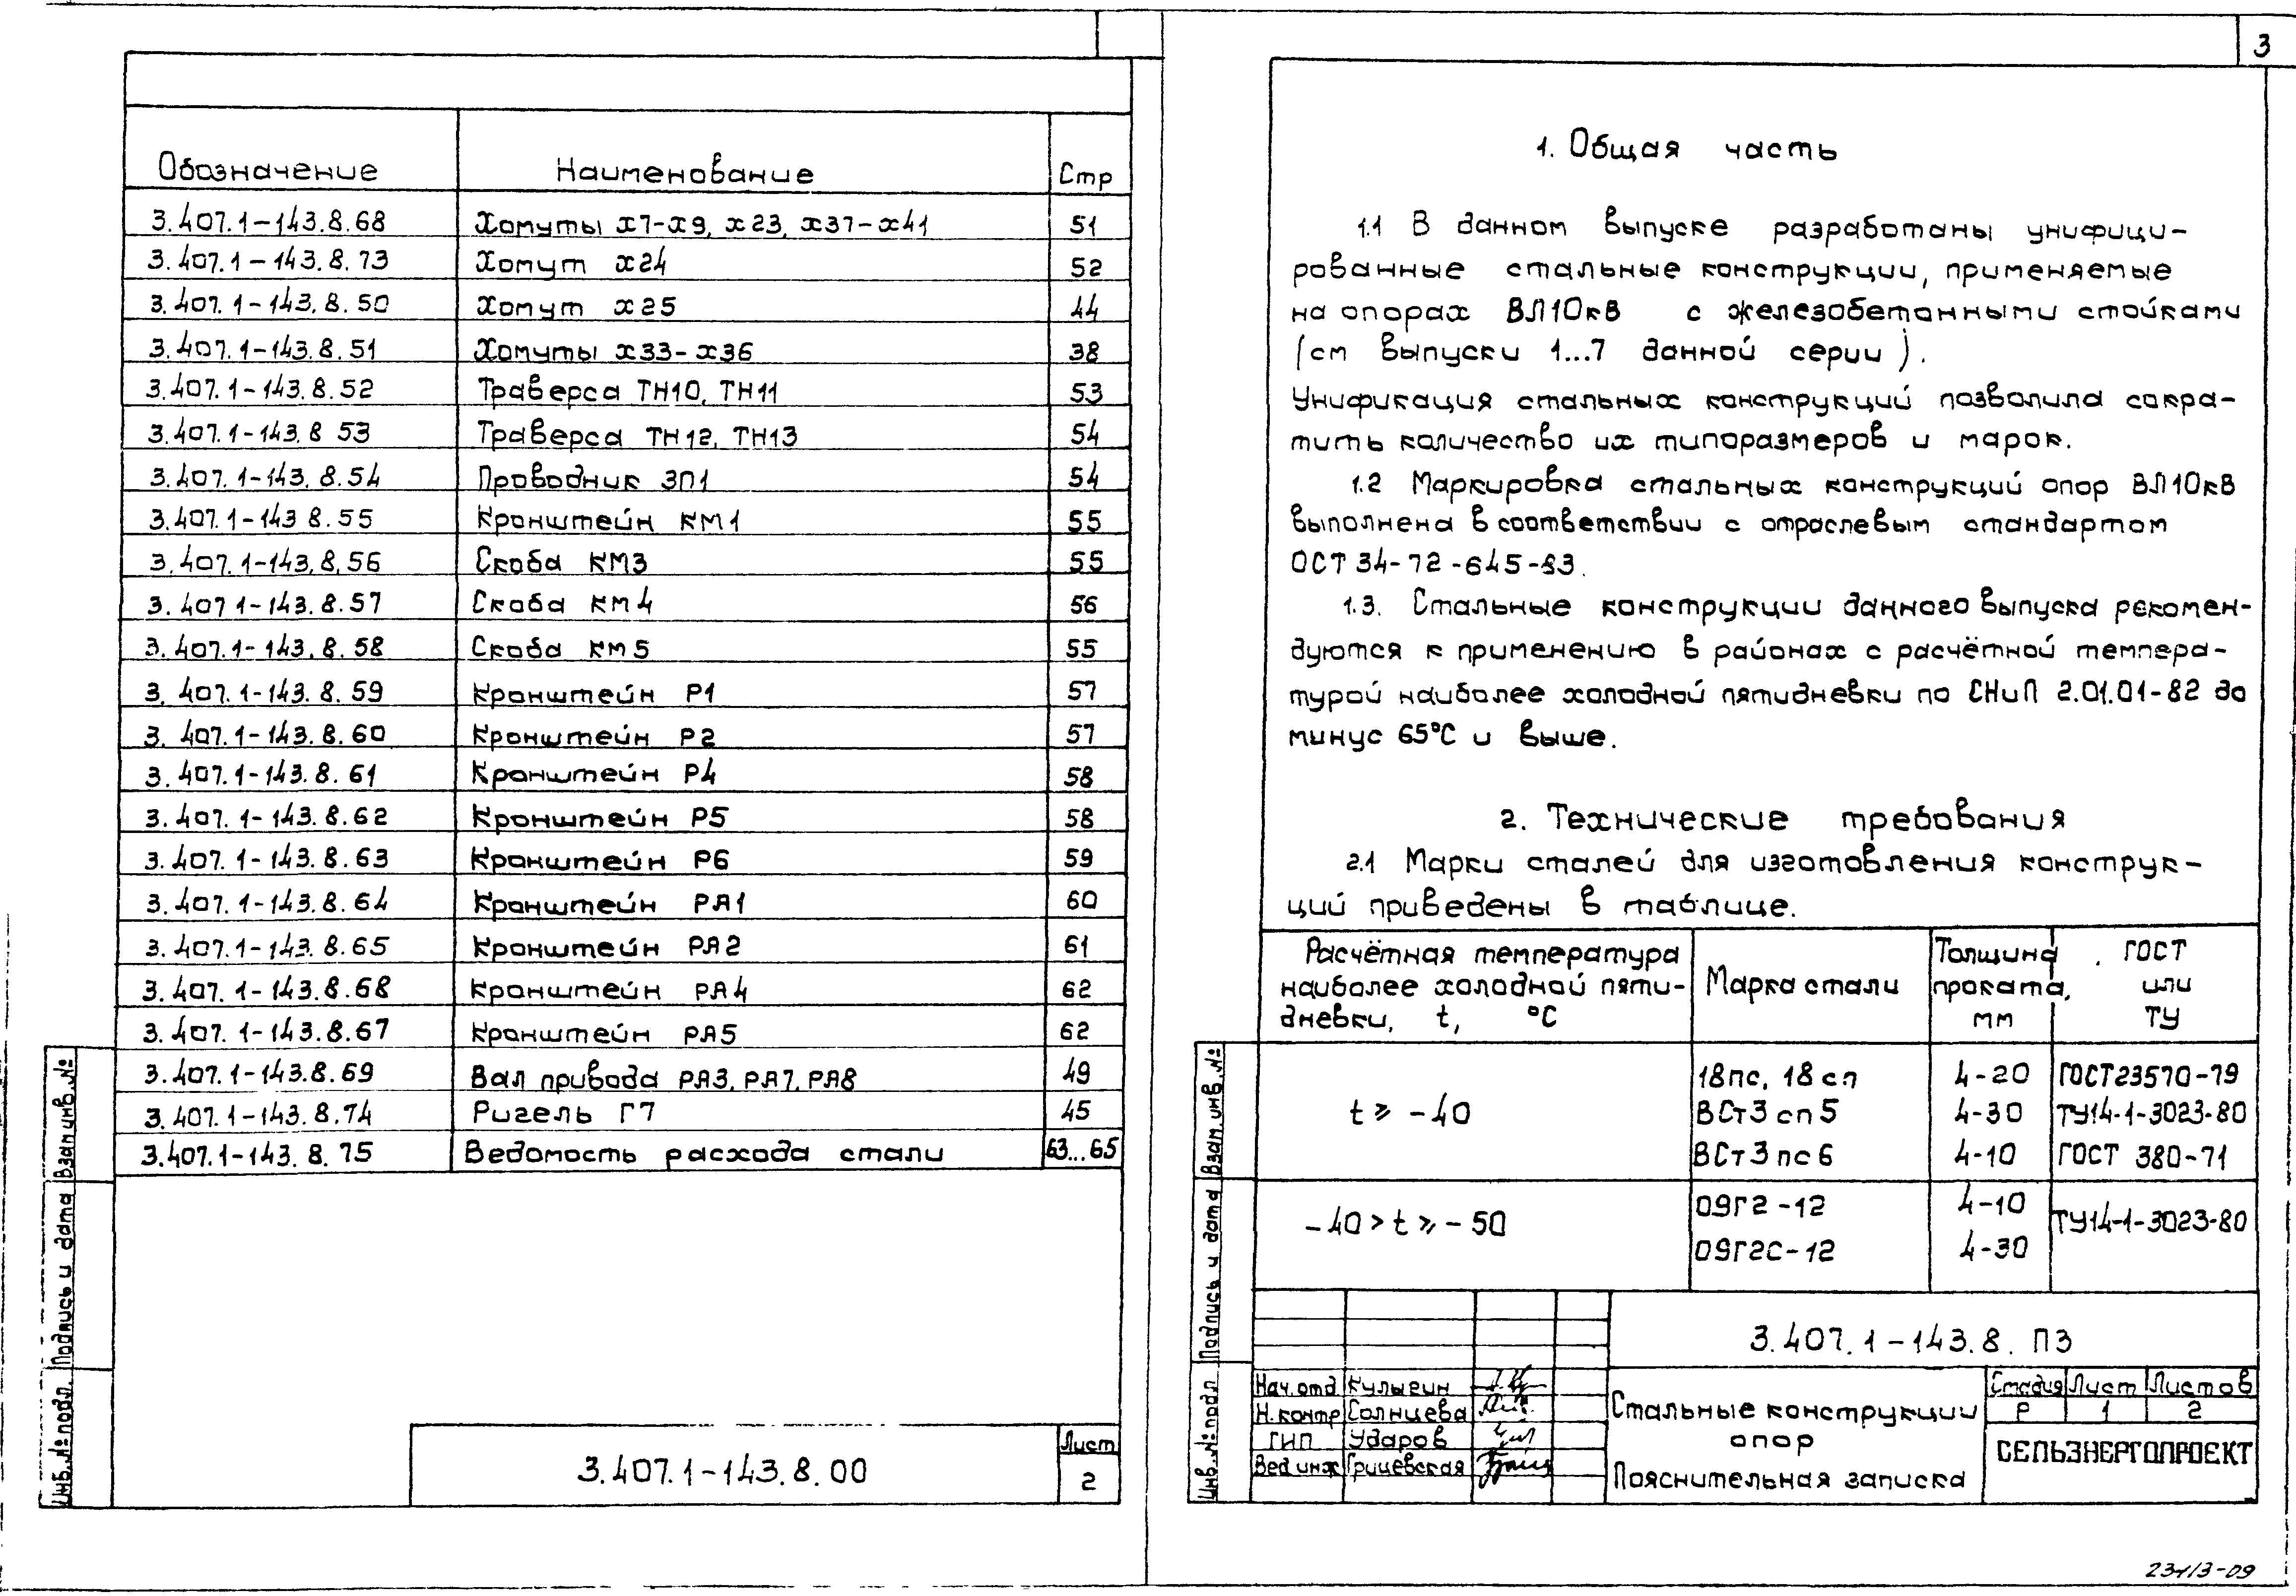 Обозначение Наименование Стр
3.407.1-143.8.68 Хомуты х7-х9, х23, х37-х41 51
3.407.1-143.8.73 Хомут х24 52
3.407.1-143.8.50 Хомут х25 44
3.407.1-143.8.51 Хомуты х33-х36 38
3.407.1-143.8.52 Траверса ТН10, ТН11 53
3.407.1-143.8 53 Траверса ТН12, ТН13 54
3.407.1-143.8.54 Проводник ЗП1 54
3.407.1-143 8.55 Кронштейн КМ1 55
3.407.1-143.8.56 Скоба КМ3 55
3.407 1-143.8.57 Скоба КМ4 56
3.407.1-143.8.58 Скоба КМ5 55
3.407.1-143.8.59 Кронштейн Р1 57
3.407.1-143.8.60 Кронштейн Р2 57
3.407.1-143.8.61 Кронштейн Р4 58
3.407.1-143.8.62 Кронштейн Р5 58
3.407.1-143.8.63 Кронштейн Р6 59
3.407.1-143.8.64 Кронштейн РА1 60
3.407.1-143.8.65 Кронштейн РА2 61
3.407.1-143.8.68 Кронштейн РА4 62
3.407.1-143.8.67 Кронштейн РА5 62
3.407.1-143.8.69 Вал привода РА3, РА7, РА8 49
3.407.1-143.8.74 Ригель Г7 45
3.407.1-143.8.75 Ведомость расхода стали 63...65
Взам инв. №
Подпись и дата
Инв. № подл.
3.407.1-143.8.00
Лист
2
3
1. Общая часть
1.1 В данном выпуске разработаны унифици-
рованные стальные конструкции, применяемые
на опорах ВЛ10кВ с железобетонными стойками
(см выпуски 1...7 данной серии).
Унификация стальных конструкций позволила сокра-
тить количество их типоразмеров и марок.
1.2 Маркировка стальных конструкций опор ВЛ10кВ
выполнена в соответствии с отраслевым стандартом
ОСТ 34-72-645-83.
1.3. Стальные конструкции данного выпуска рекомен-
дуются к применению в районах с расчётной темпера-
турой наиболее холодной пятидневки по СНиП 2.01.01-82 до
минус 65°С и выше.
2. Технические требования
2.1 Марки сталей для изготовления конструк-
ций приведены в таблице.
Расчётная температура наиболее холодной пяти-дневки, t, °С Марка стали Толщина проката, мм ГОСТ или ТУ
t ⩾ -40
18пс, 18сп 4-20 ГОСТ23570-79
ВСт3сп5 4-30 ТУ14-1-3023-80
ВСт3пс6 4-10 ГОСТ 380-71
-40 > t ⩾ -50
09Г2-12 4-10 ТУ14-1-3023-80
09Г2С-12 4-30
Взам. инв. №
Подпись и дата
Инв. № подл
3.407.1-143.8. ПЗ
Нач. отд Кулыгин
Н. контр Солнцева
ГИП Ударов
Вед инж Грицевская
Стальные конструкции
опор
Пояснительная записка
Стадия Лист Листов
Р 1 2
СЕЛЬЭНЕРГОПРОЕКТ